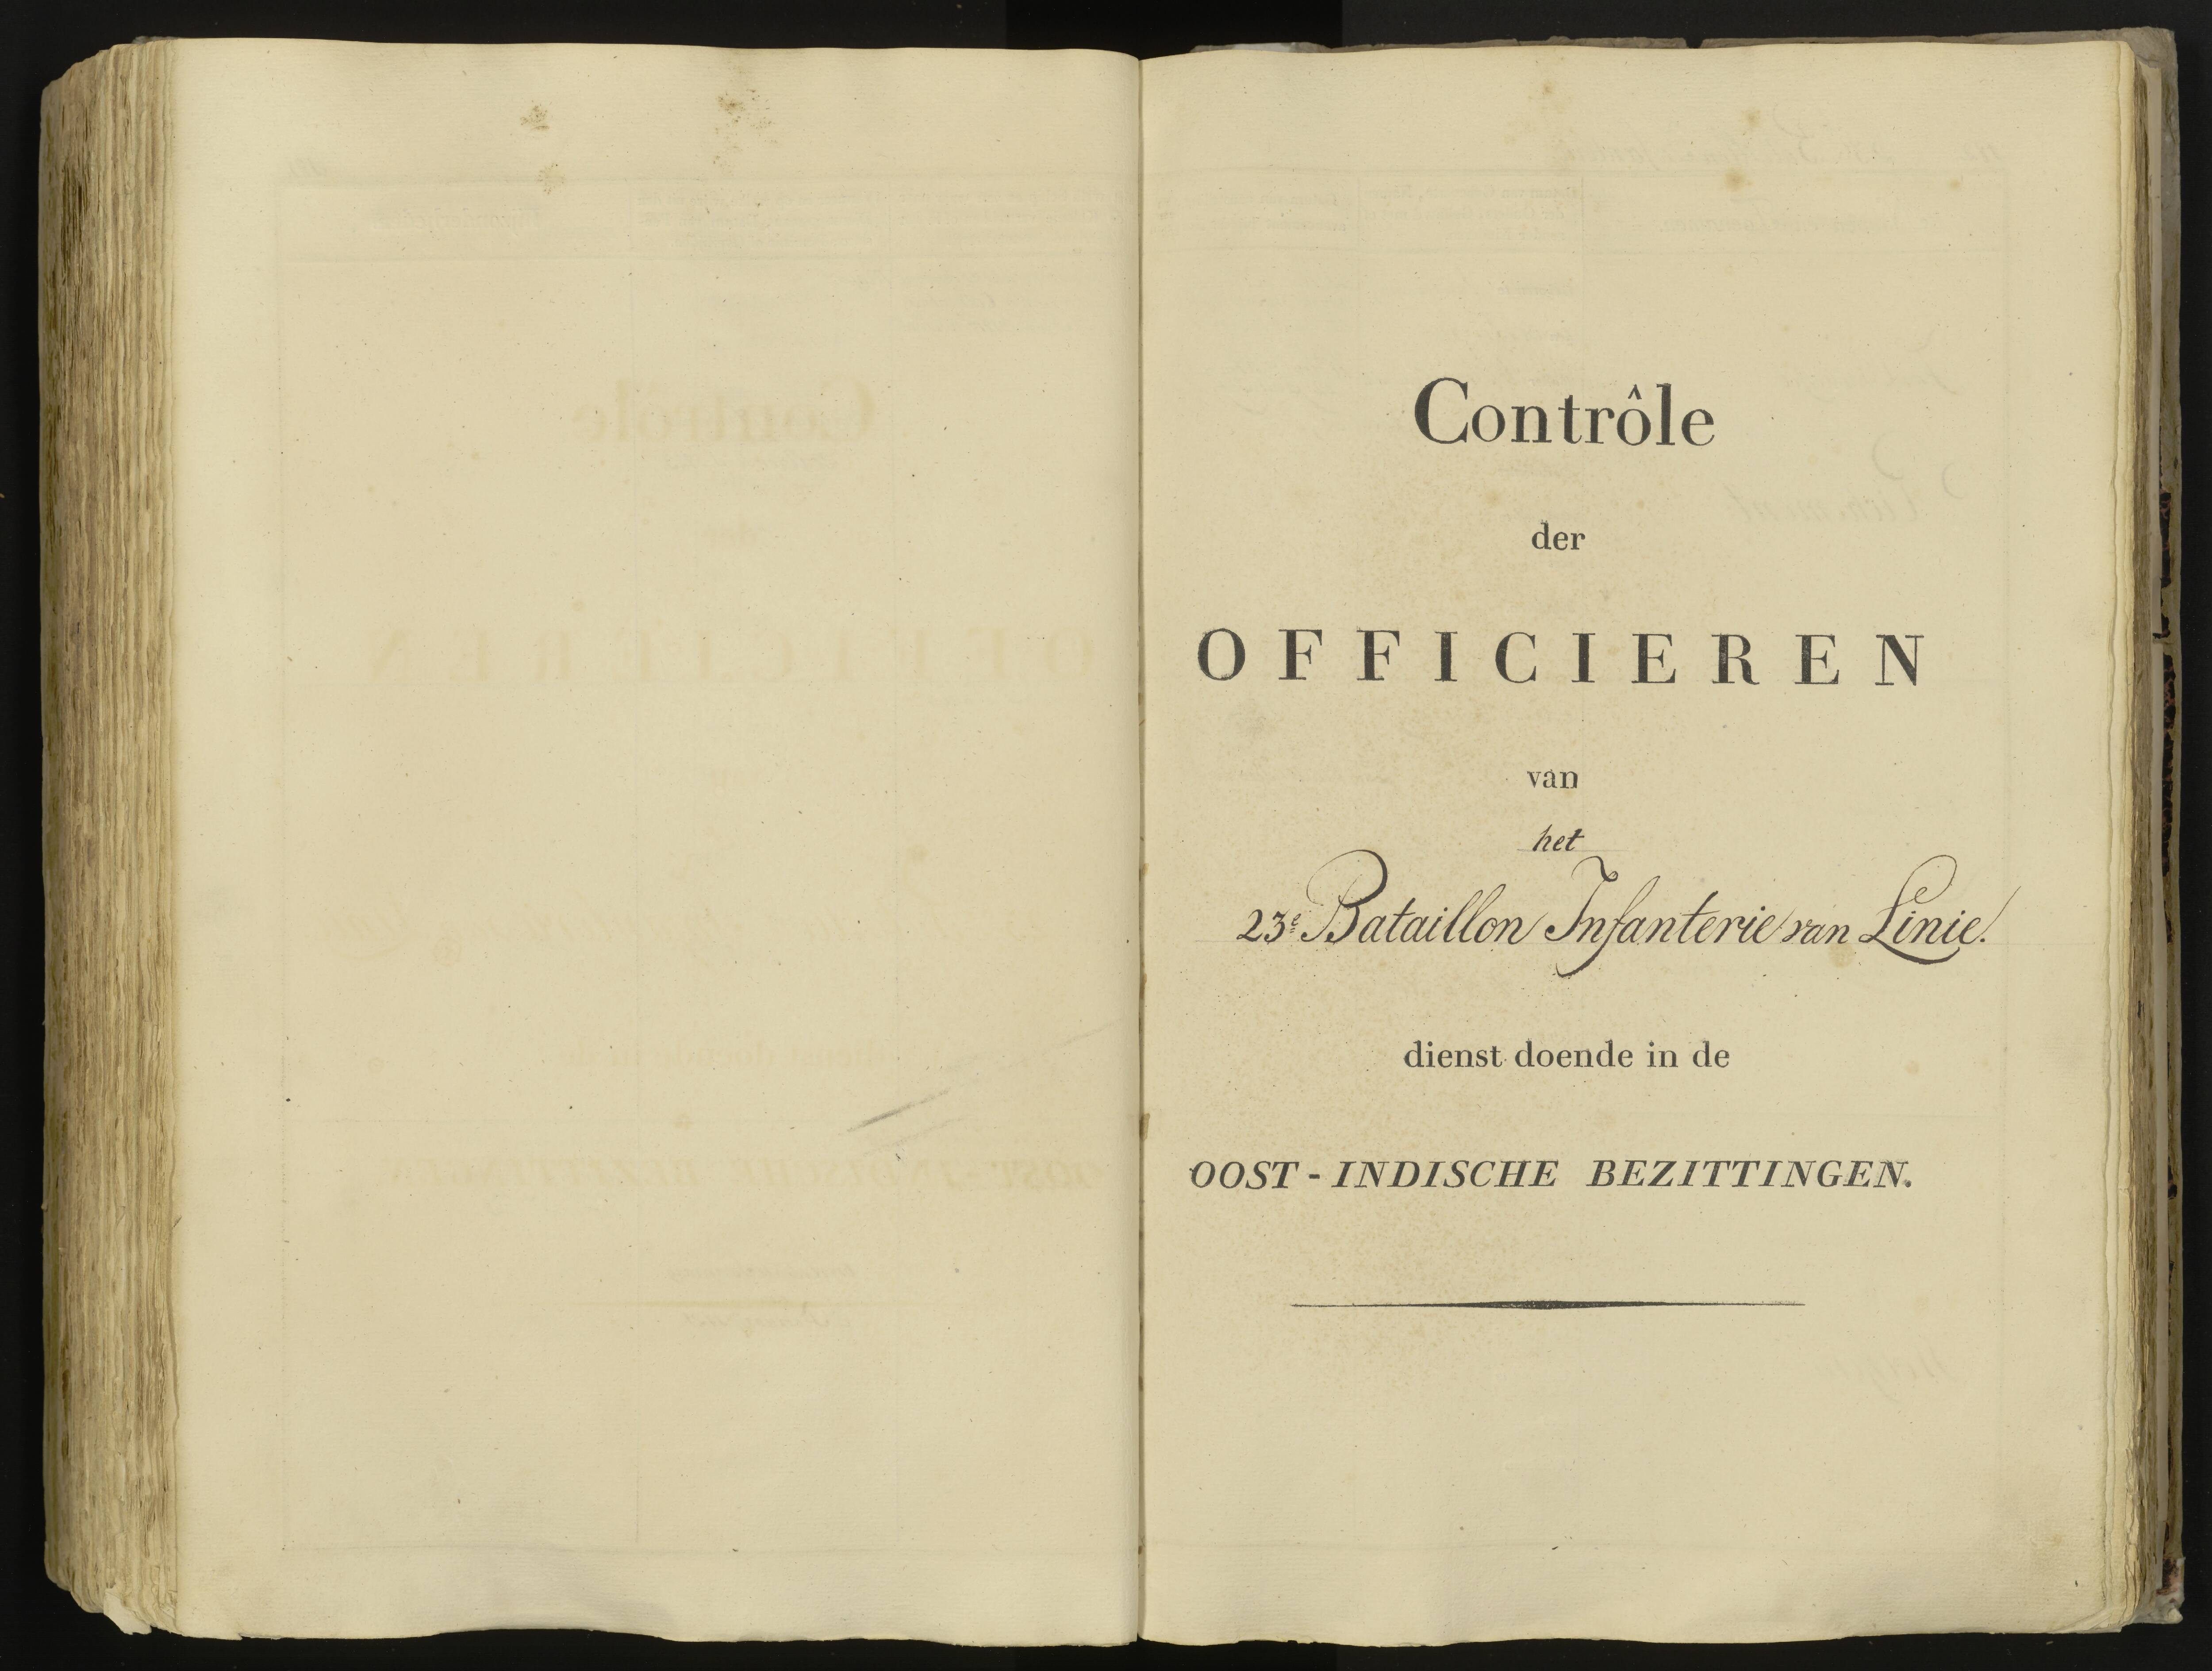 Contrôle
der
OFFICIEREN
van
het
23e Bataillon Infanterie van Linie.
dienst doende in de
OOST-INDISCHE BEZITTINGEN.